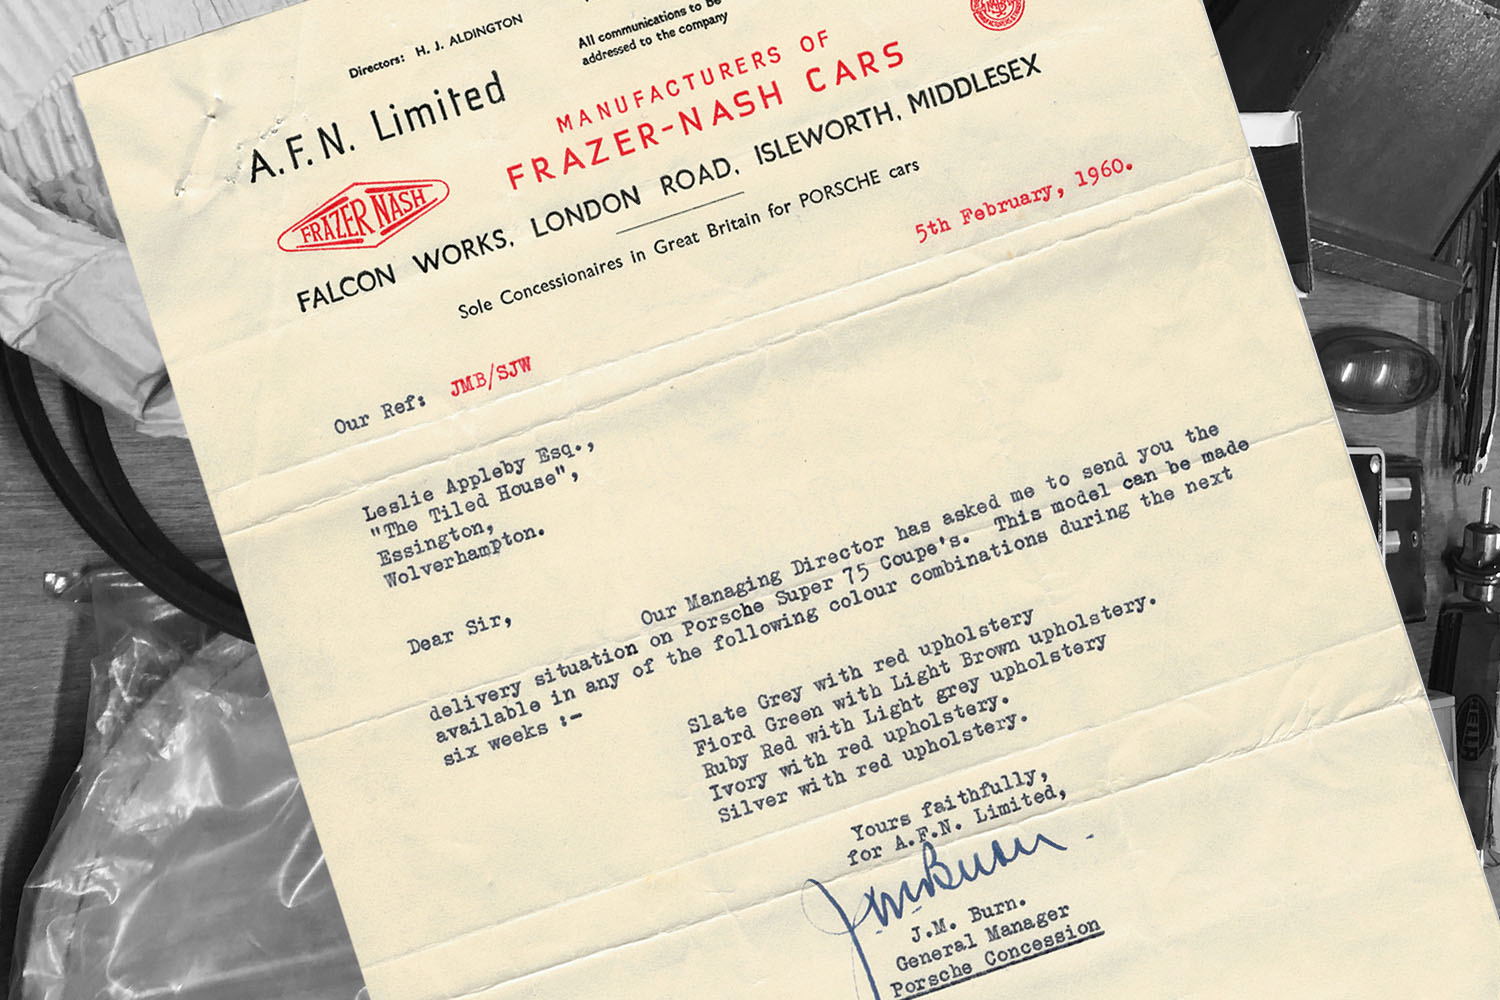 Directors: H. J. ALDINGTON
All communications to be
addressed to the company
A.F.N. Limited
MANUFACTURERS OF
FRAZER-NASH CARS
FRAZER NASH
FALCON WORKS, LONDON ROAD, ISLEWORTH, MIDDLESEX
Sole Concessionaires in Great Britain for PORSCHE cars
5th February, 1960.
Our Ref: JMB/SJW
Leslie Appleby Esq.,
"The Tiled House",
Essington,
Wolverhampton.
Dear Sir,
Our Managing Director has asked me to send you the
delivery situation on Porsche Super 75 Coupe's. This model can be made
available in any of the following colour combinations during the next
six weeks :-
Slate Grey with red upholstery
Fiord Green with Light Brown upholstery.
Ruby Red with Light grey upholstery
Ivory with red upholstery.
Silver with red upholstery.
Yours faithfully,
for A.F.N. Limited,
J.M. Burn.
J.M. Burn.
General Manager
Porsche Concession
HELLER